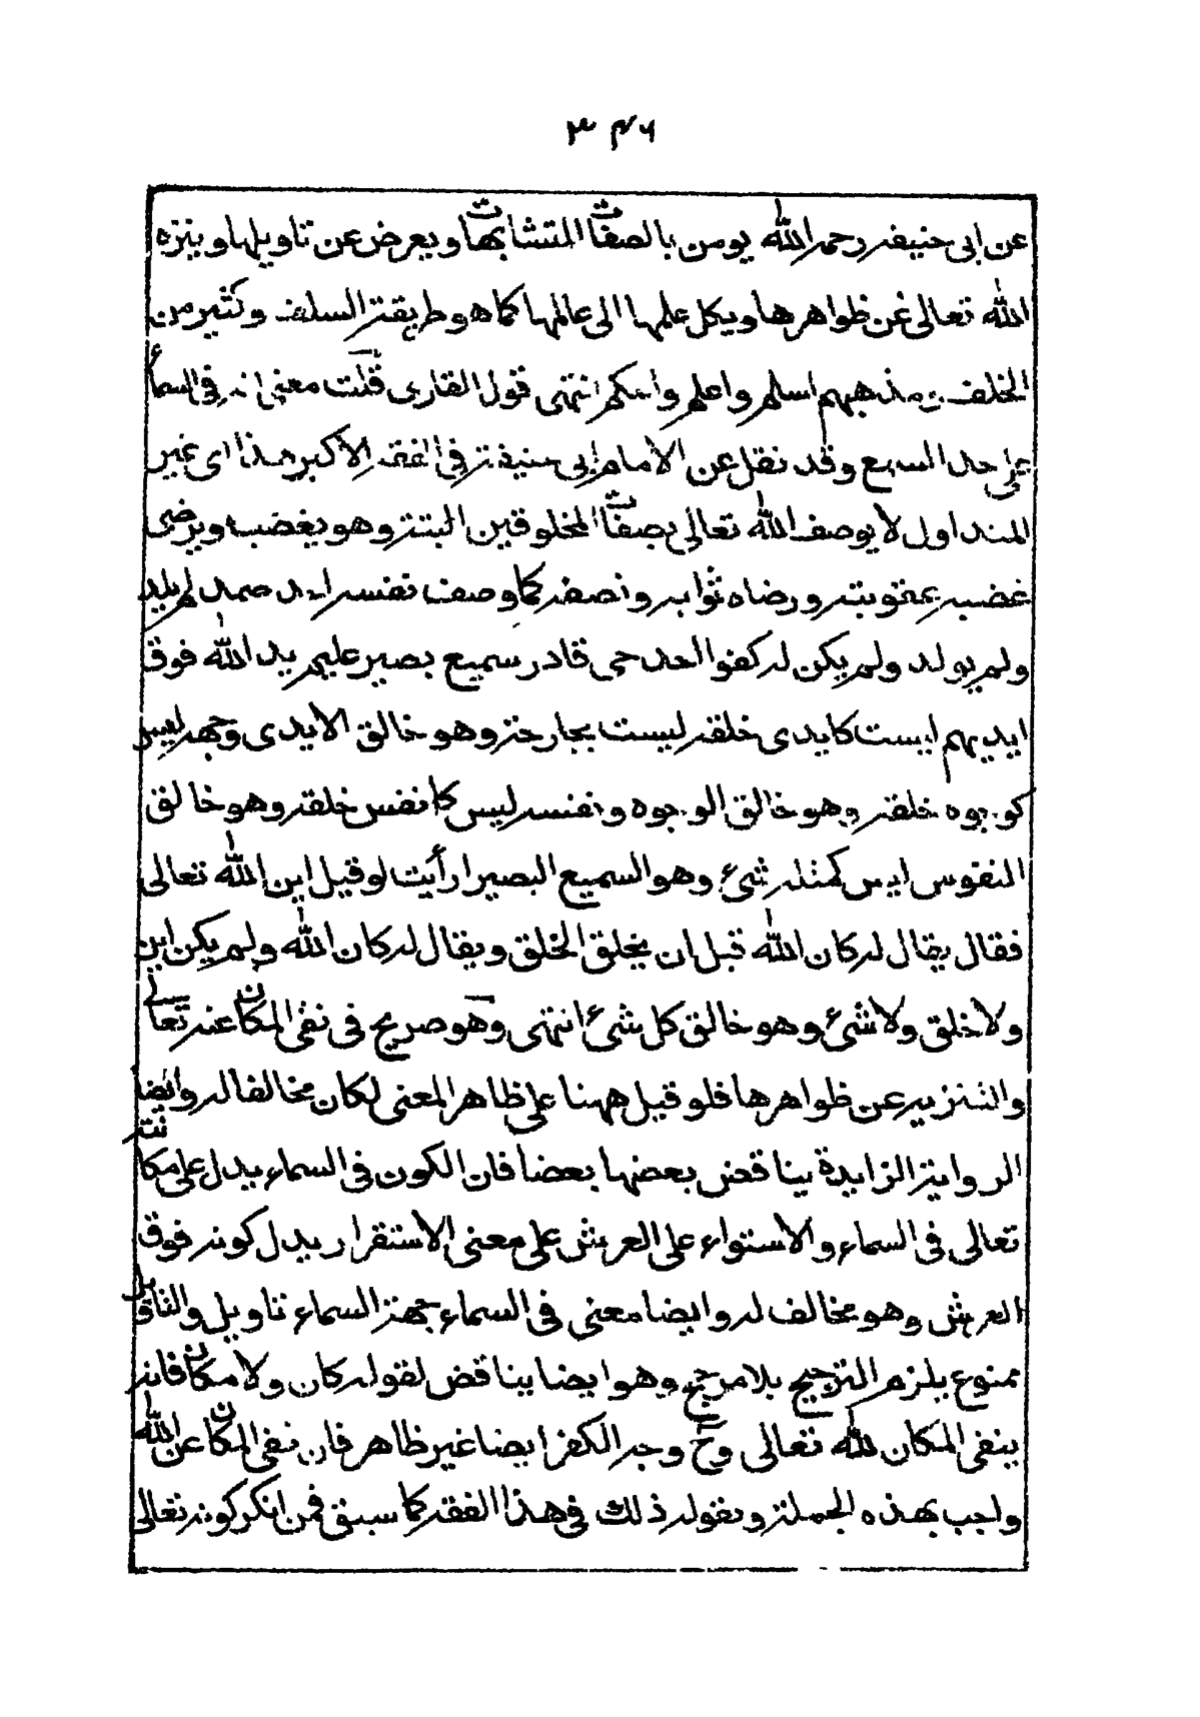 ٣٤٦
عن ابى حنيفة رحمه الله يومن بالصفات المتشابهات ويعرض عن تاويلها وينزه
الله تعالى عن ظواهرها ويكل علمها الى عالمها كما هو طريقة السلف وكثير من
الخلف ومذهبهم اسلم واعلم واحكم انتهى قول القارى قلت معنى انه فى السماء
على حد السبع وقد نقل عن الامام ابى حنيفة فى الفقه الاكبر هذا اى غير
المتداول لا يوصف الله تعالى بصفات المخلوقين البتة وهو يغضب ويرضى
غضبه عقوبته ورضاه ثوابه ونصفه كما وصف نفسه احد صمد لم يلد
ولم يولد ولم يكن له كفوا احد حى قادر سميع بصير عليم يد الله فوق
ايديهم ليست كايدى خلقه ليست بجارحة وهو خالق الايدى وجهه ليس
كوجوه خلقه وهو خالق الوجوه ونفسه ليس كانفس خلقه وهو خالق
النفوس ليس كمثله شئ وهو السميع البصير ارأيت لو قيل اين الله تعالى
فقال يقال له كان الله قبل ان يخلق الخلق ويقال له كان الله ولم يكن اين
ولا خلق ولا شئ وهو خالق كل شئ انتهى وهو صريح فى نفى المكان عنه تعالى
والتنزيه عن ظواهرها فلو قيل ههنا على ظاهر المعنى لكان مخالفا له وايضا
الرواية الزايدة يناقض بعضها بعضا فان الكون فى السماء يدل على مكانته
تعالى فى السماء والاستواء على العرش على معنى الاستقرار يدل كونه فوق
العرش وهو مخالف له وايضا معنى فى السماء جهة السماء تاويل والتاويل
ممنوع يلزم الترجيح بلا مرجح وهو ايضا يناقض لقوله كان ولا مكان فانه
ينفى المكان لله تعالى وح وجه الكفر ايضا غير ظاهر فان نفى المكان عن الله
واجب بهذه الجملة وبقوله ذلك فى هذا الفقه كما سبق فمن انكر كونه تعالى